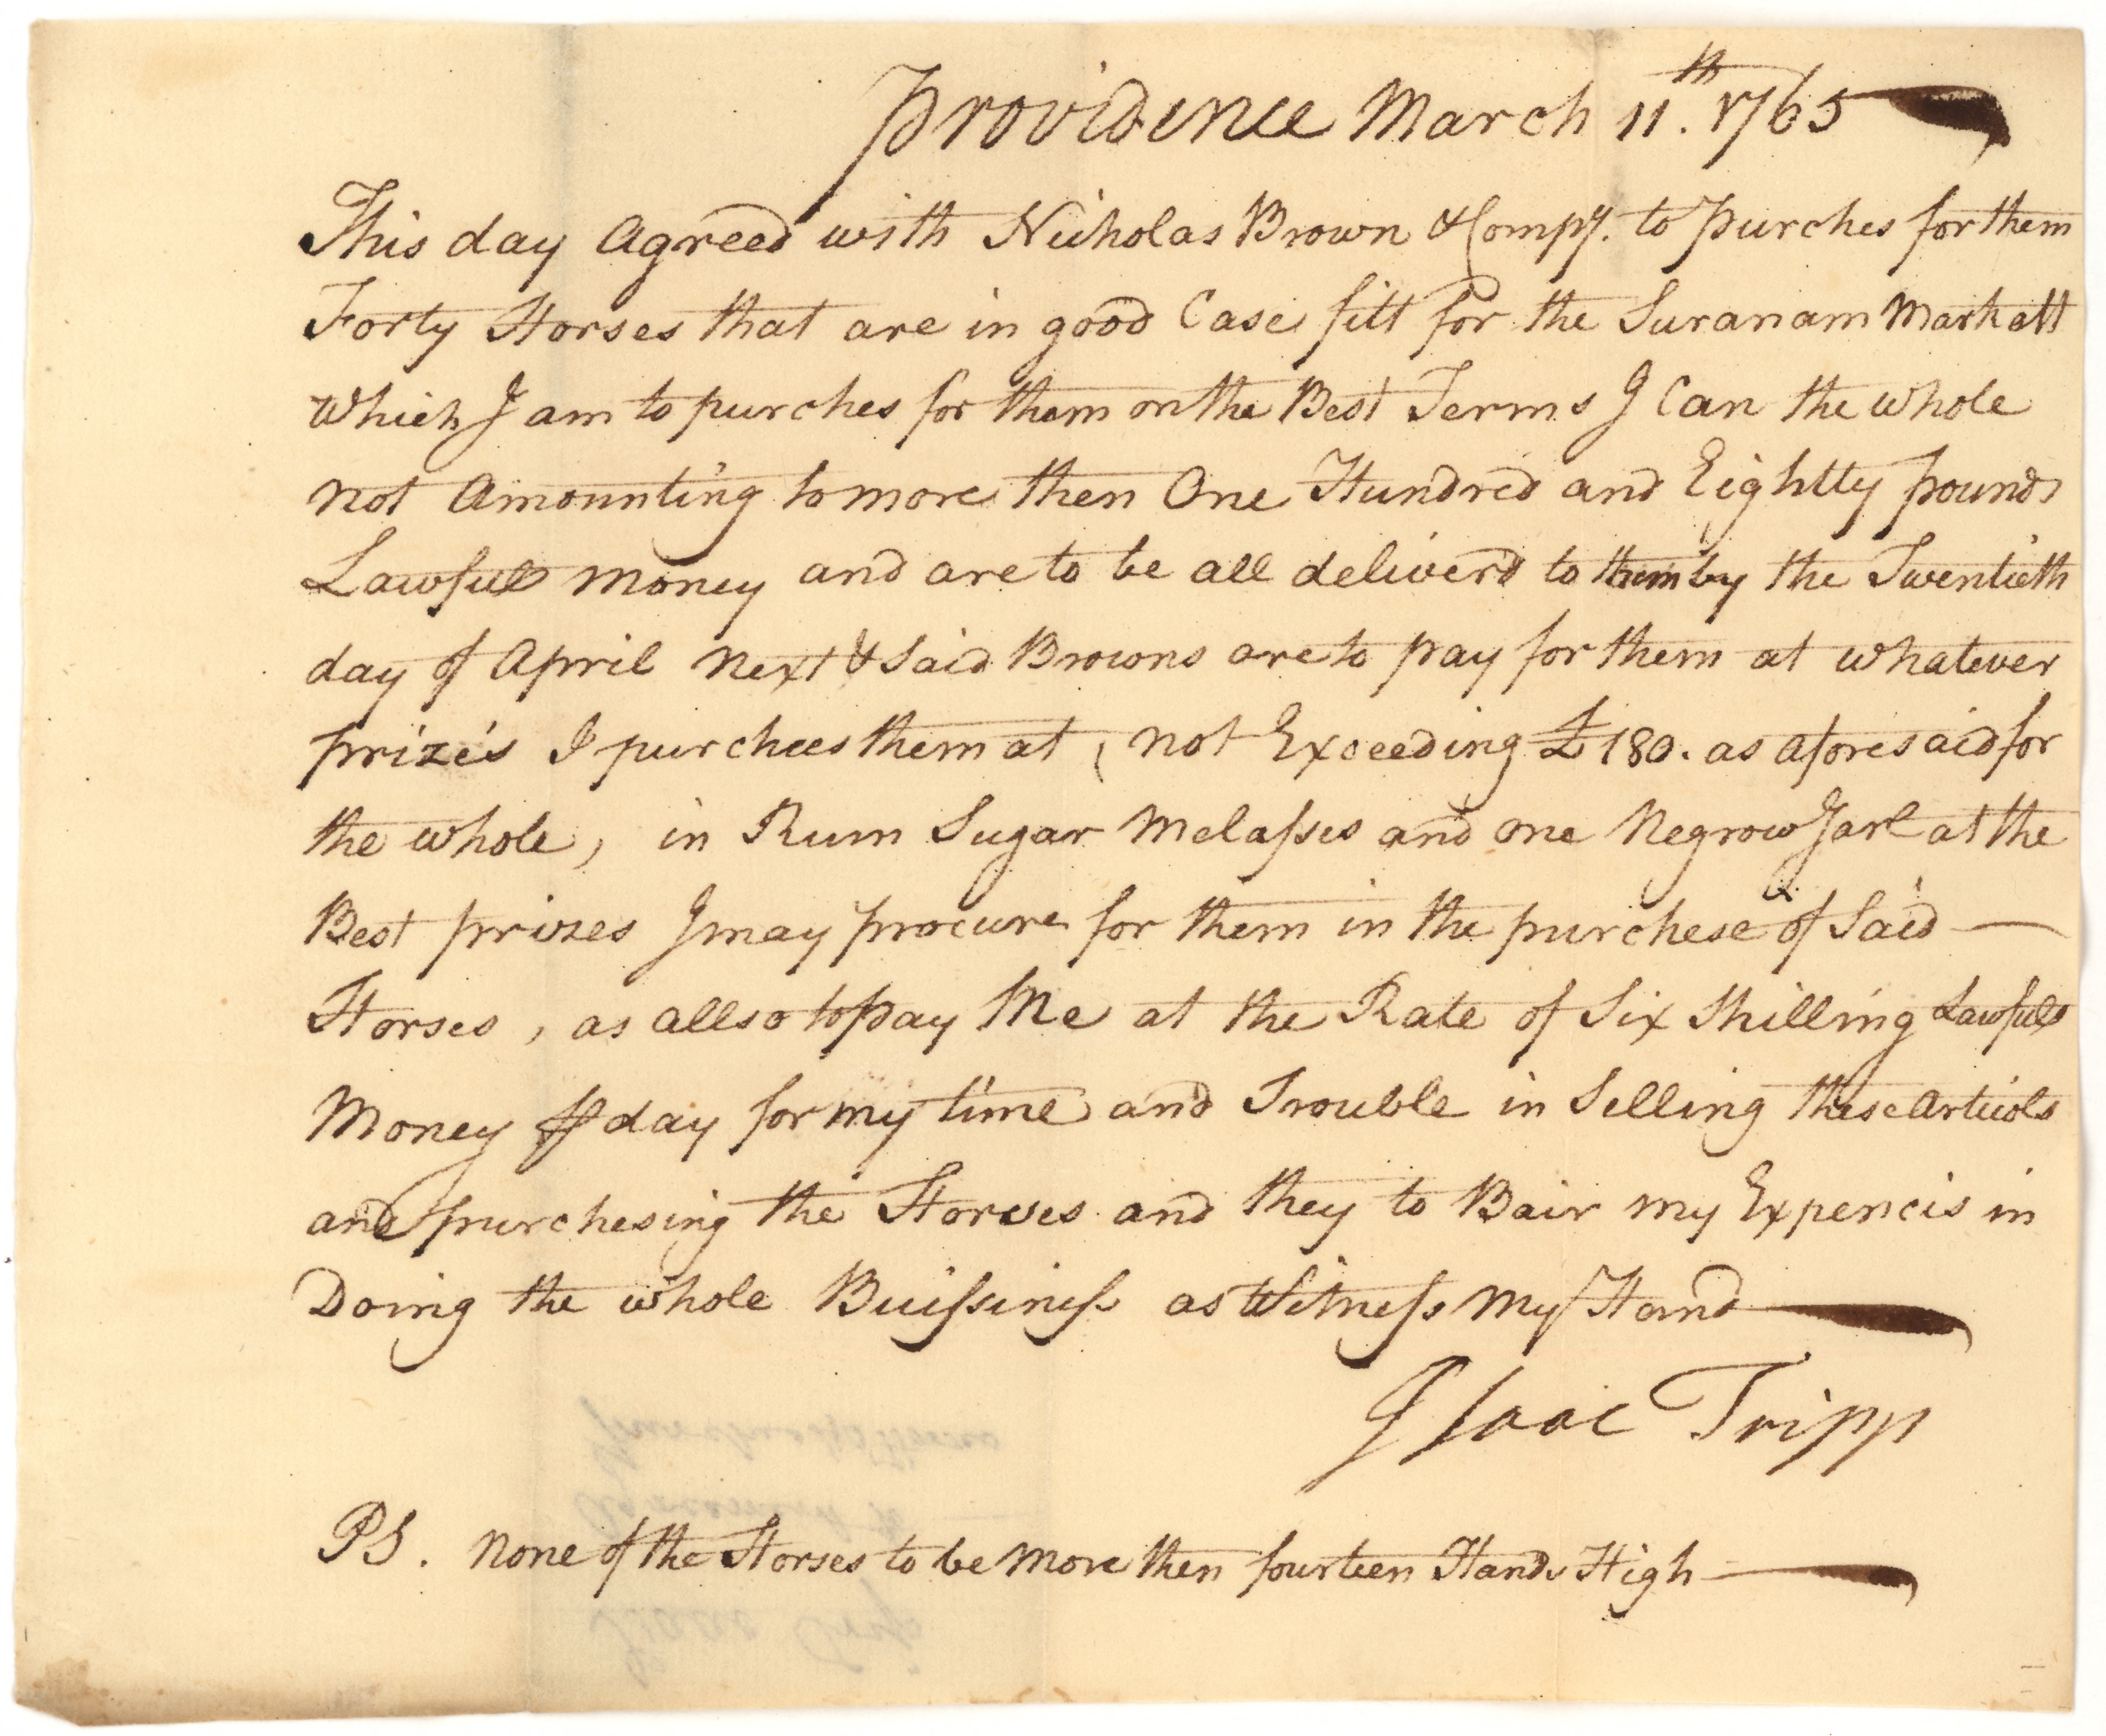 Providence March 11th. 1765
This day Agreed with Nicholas Brown & Compy. to purches for them
Forty Horses that are in good Case fitt for the Suranam Markatt
Which I am to purches for them on the Best Terms I Can the whole
not Amounting to more then One Hundred and Eightty pounds
Lawfull money and are to be all deliverd to them by the Twentieth
day of April next & Said Browns are to pay for them at whatever
prizes I purchees them at, not Exceeding £180. as aforesaid for
the whole, in Rum Sugar Melasses and one Negrow Garl at the
Best prizes I may procure for them in the purchese of Said —
Horses, as allso to pay Me at the Rate of Six Shilling Lawfull
Money ⅌ day for my time and Trouble in Selling these Articols
and purchesing the Horses and they to Bair my Expencis in
Doing the whole Buissiness as Witness my Hand
Isaac Tripp
PS. None of the Horses to be more then fourteen Hands High